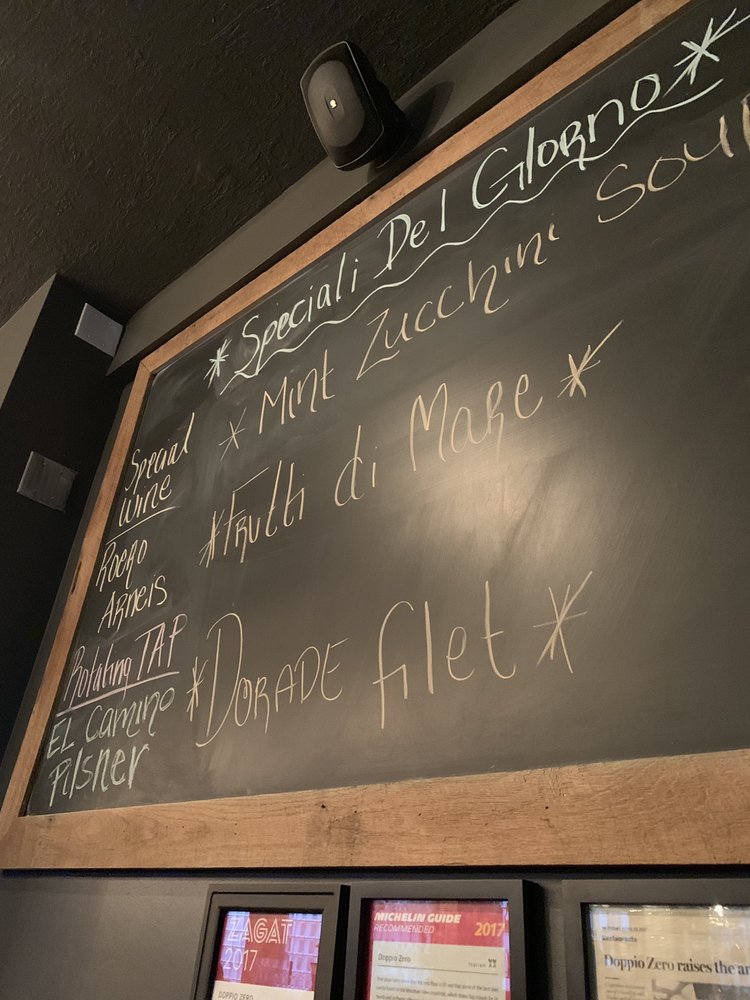 Speciali Del Giorno
Mint Zucchini Soup
Frutti di Mare
Dorade filet
Special
Wine
Roero
Arneis
Rotating TAP
EL Camino
Pilsner
ZAGAT
2017
DOPPIO ZERO
MICHELIN GUIDE 2017
RECOMMENDED
Doppio Zero
Italian
Restaurants
Doppio Zero raises the